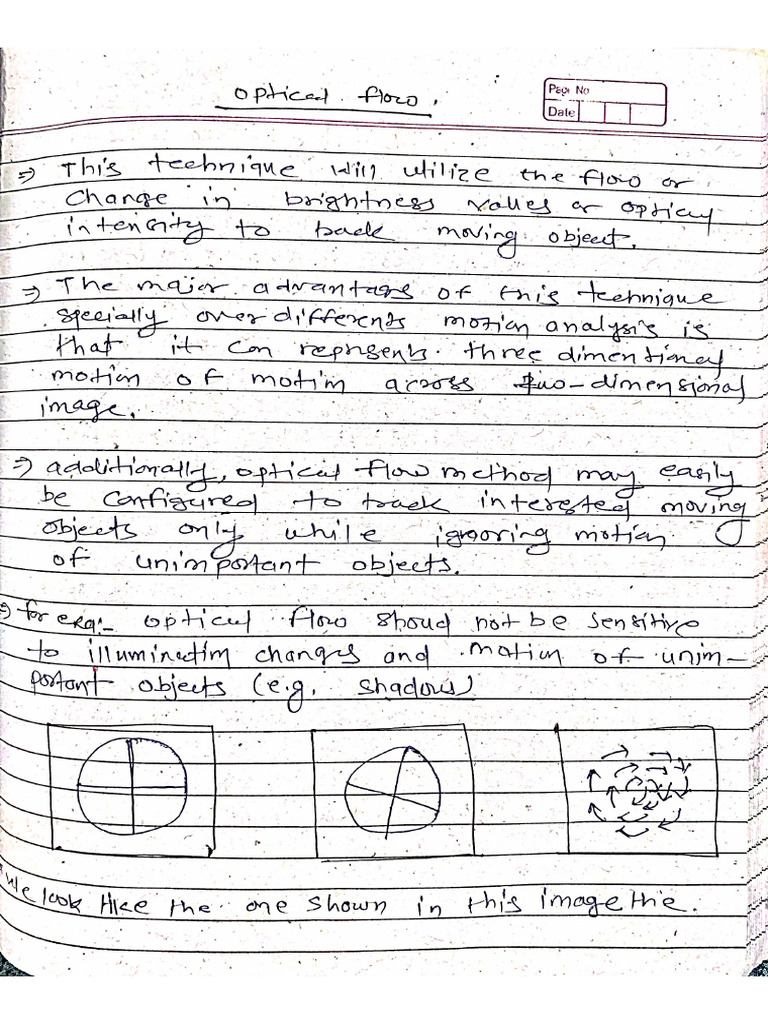 optical flow.
Page No
Date
⇒ This technique will utilize the flow or
change in brightness values or optical
intencity to track moving object.
⇒ The major advantags of this technique
specially over differents motion analysis is
that it can reprsents three dimentional
motion of motion across two-dimensional
image.
⇒ additionally, optical flow method may easily
be configured to track interested moving
objects only while ignoring motion
of unimportant objects.
⇒ for exa:- optical flow shoud not be sensitive
to illumination changes and motion of unim-
portant objects (e.g. shadows)
We look like the one shown in this image the.